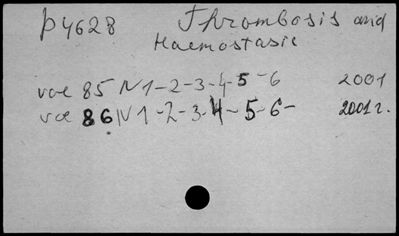 p4628 Thrombosis and
Haemostasis
vol 85 N 1-2-3-4-5-6 2001
vol 86 N 1-2-3-4-5-6- 2001 г.